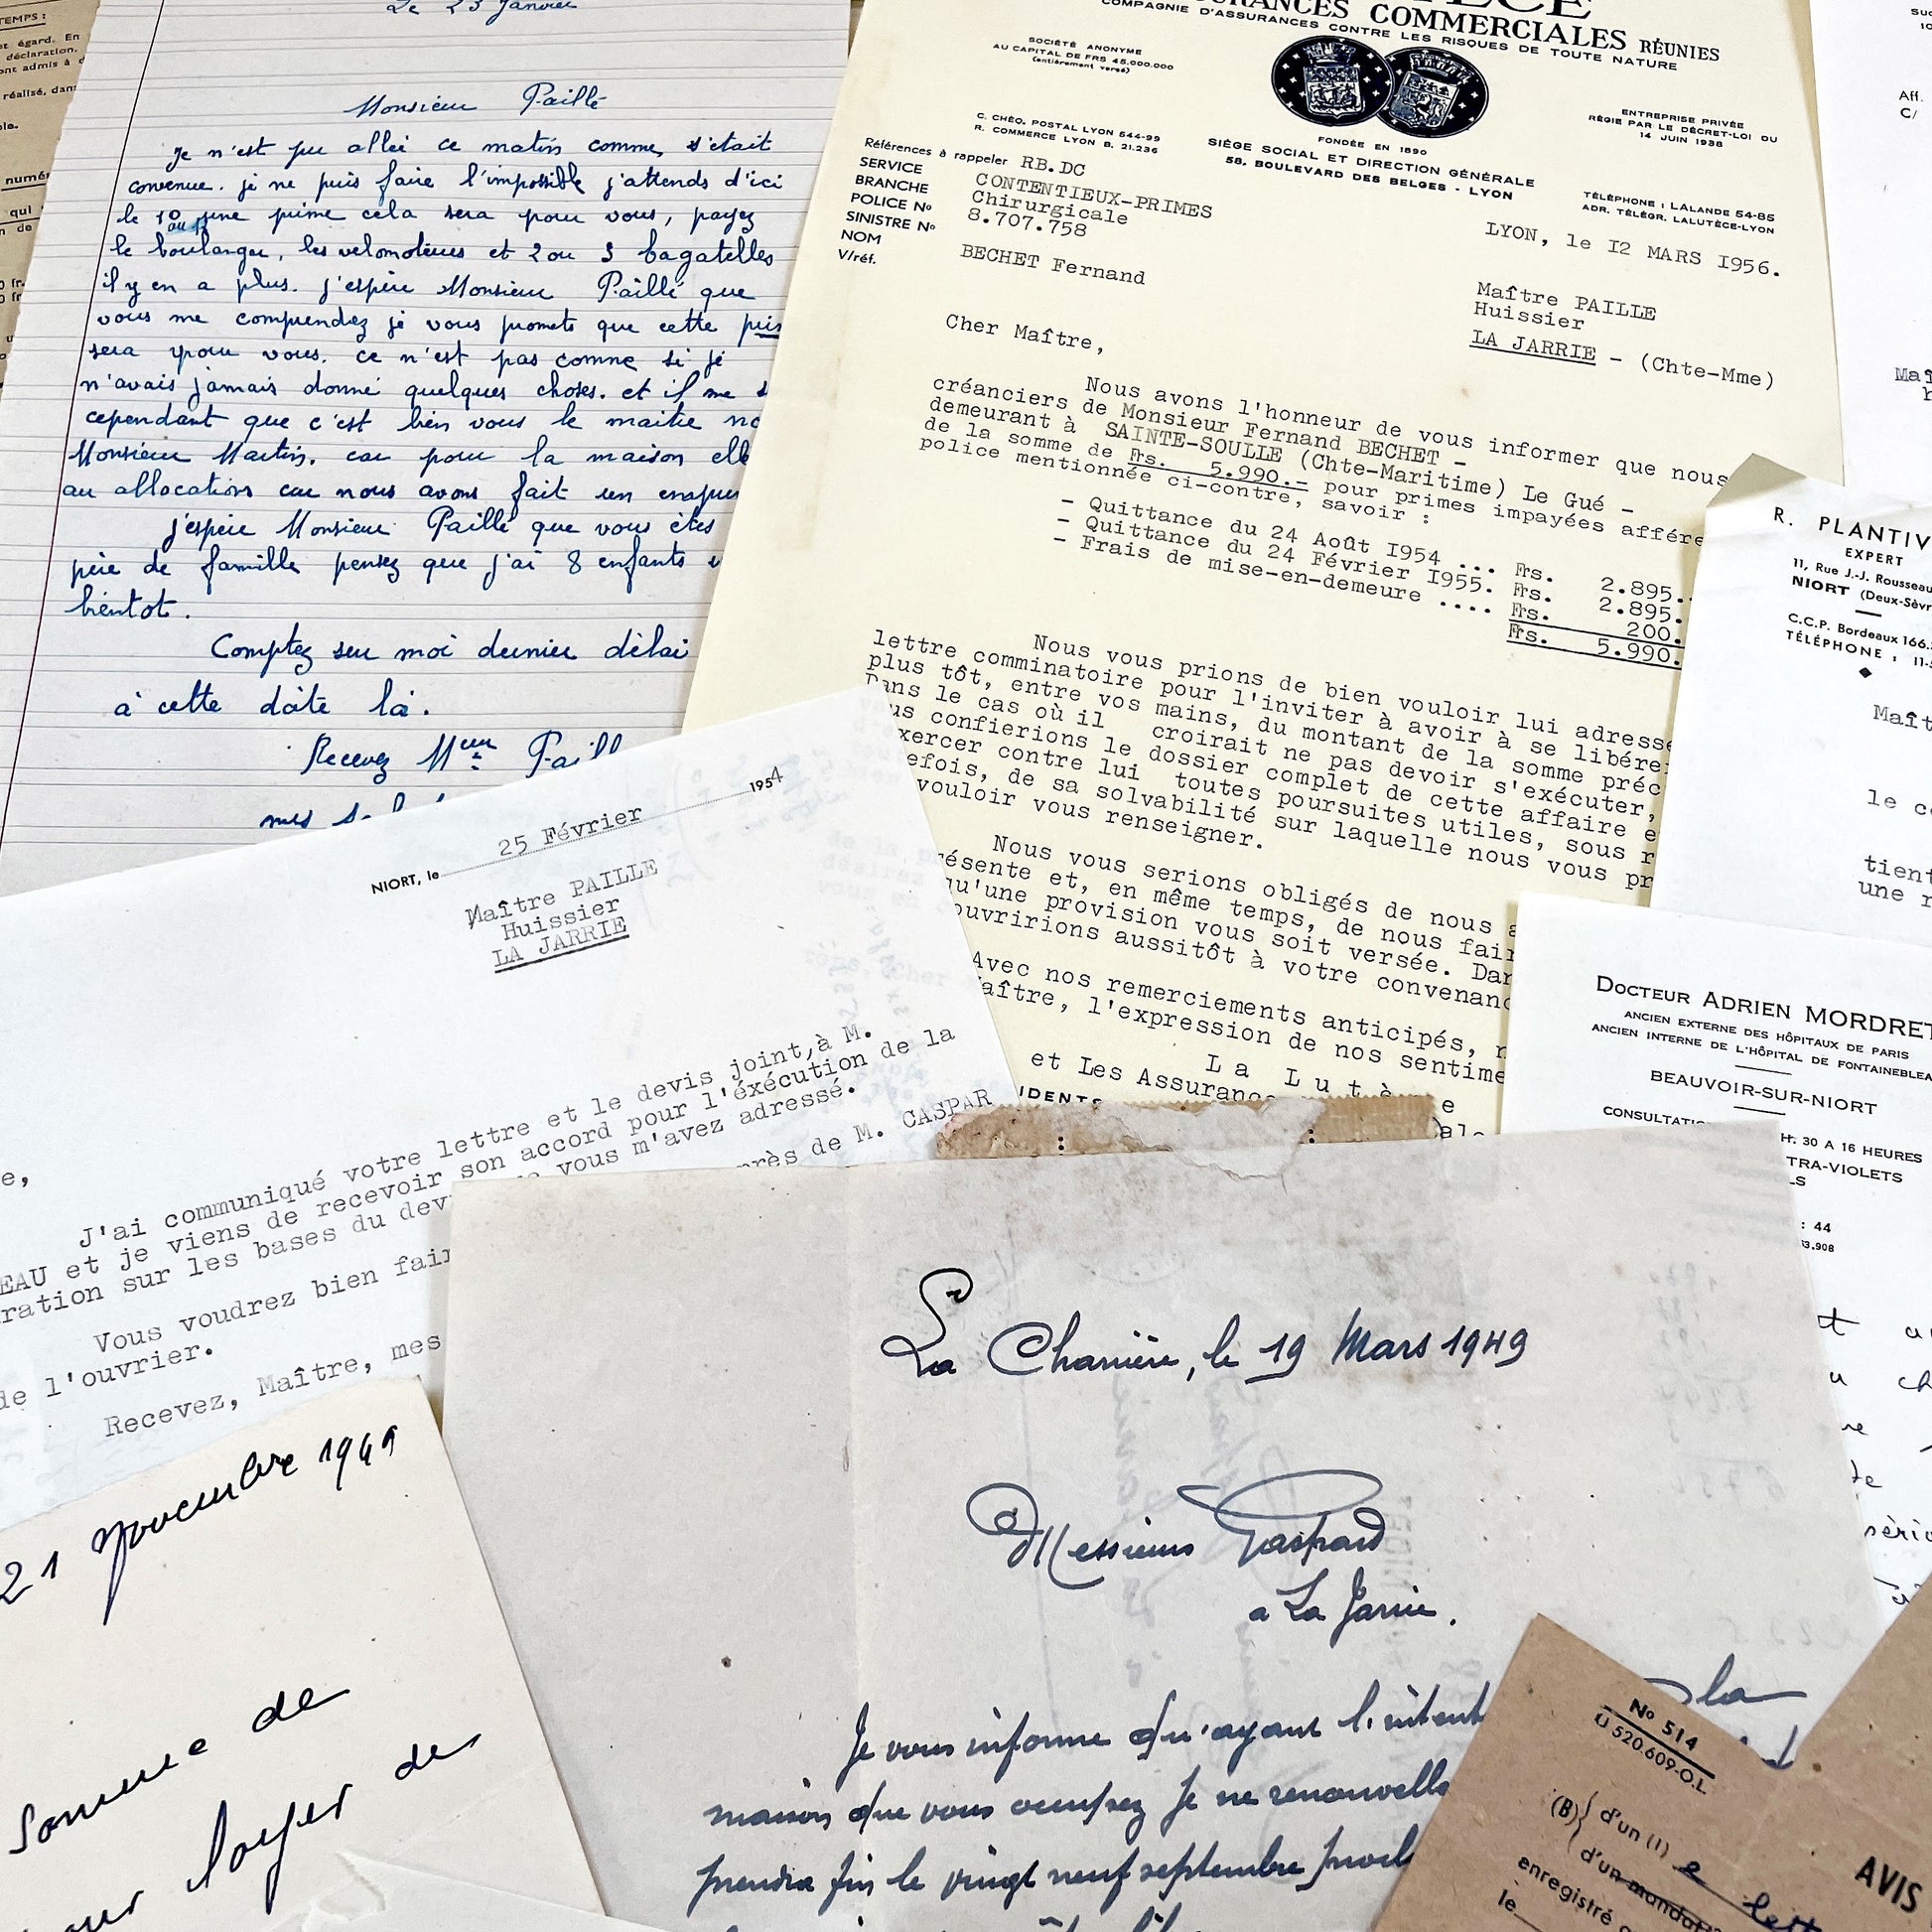 TEMPS :
et égard. En
déclaration.
ont admis à d
réalisé, dans
numér
qui
Le 23 Janvier
Monsieur Paillé
Je n'est pu allée ce matin comme s'était
convenue. je ne puis faire l'impossible j'attends d'ici
le 10 ou 15 une prime cela sera pour vous, payez
le boulanger, les velomoteurs et 2 ou 3 bagatelles
il y en a plus. j'espère Monsieur Paillé que
vous me comprendez je vous promets que cette
sera pour vous. ce n'est pas comme si je
n'avais jamais donné quelques choses. et il me s
cependant que c'est bien vous le maitre no
Monsieur Martin. car pour la maison elle
au allocations car nous avons fait un
j'espère Monsieur Paillé que vous êtes
père de famille pensez que j'ai 8 enfants
bientot.
Comptez sur moi dernier délai
à cette date là.
Recevez Paill
mes
ASSURANCES COMMERCIALES RÉUNIES
COMPAGNIE D'ASSURANCES CONTRE LES RISQUES DE TOUTE NATURE
SOCIÉTÉ ANONYME
AU CAPITAL DE FRS 45.000.000
(entièrement versé)
C. CHÉQ. POSTAL LYON 544-99
R. COMMERCE LYON B. 21.236
FONDÉE EN 1890
SIÈGE SOCIAL ET DIRECTION GÉNÉRALE
58. BOULEVARD DES BELGES - LYON
ENTREPRISE PRIVÉE
RÉGIE PAR LE DÉCRET-LOI DU
14 JUIN 1938
TÉLÉPHONE : LALANDE 54-85
ADR. TÉLÉGR. LALUTÈCE-LYON
Références à rappeler RB.DC
SERVICE CONTENTIEUX-PRIMES
BRANCHE Chirurgicale
POLICE No 8.707.758
SINISTRE No
NOM BECHET Fernand
V/réf.
LYON, le I2 MARS I956.
Maître PAILLE
Huissier
LA JARRIE - (Chte-Mme)
Cher Maître,
Nous avons l'honneur de vous informer que nous
créanciers de Monsieur Fernand BECHET -
demeurant à SAINTE-SOULLE (Chte-Maritime) Le Gué -
de la somme de Frs. 5.990.- pour primes impayées affére
police mentionnée ci-contre, savoir :
- Quittance du 24 Août I954 ... Frs. 2.895.
- Quittance du 24 Février I955. Frs. 2.895.
- Frais de mise-en-demeure .... Frs. 200.
Frs. 5.990.
Nous vous prions de bien vouloir lui adresse
lettre comminatoire pour l'inviter à avoir à se libére
plus tôt, entre vos mains, du montant de la somme préc
Dans le cas où il croirait ne pas devoir s'exécuter,
us confierions le dossier complet de cette affaire e
xercer contre lui toutes poursuites utiles, sous r
efois, de sa solvabilité sur laquelle nous vous pr
vouloir vous renseigner.
Nous vous serions obligés de nous a
résente et, en même temps, de nous fair
qu'une provision vous soit versée. Dan
ouvririons aussitôt à votre convenanc
Avec nos remerciements anticipés, n
aître, l'expression de nos sentime
La Lutèce
et Les Assurance
IDENTS
Aff.
C/
Maî
R. PLANTIV
EXPERT
11, Rue J.-J. Rousseau
NIORT (Deux-Sèvr
C.C.P. Bordeaux 166.
TÉLÉPHONE : 11-
Maît
le c
tient
une r
DOCTEUR ADRIEN MORDRET
ANCIEN EXTERNE DES HÔPITAUX DE PARIS
ANCIEN INTERNE DE L'HÔPITAL DE FONTAINEBLEA
BEAUVOIR-SUR-NIORT
CONSULTATIO H. 30 A 16 HEURES
TRA-VIOLETS
LS
: 44
3.908
NIORT, le 25 Février 1954
Maître PAILLE
Huissier
LA JARRIE
e,
J'ai communiqué votre lettre et le devis joint, à M.
EAU et je viens de recevoir son accord pour l'éxécution de la
ration sur les bases du dev vous m'avez adressé.
Vous voudrez bien fair près de M. CASPAR
de l'ouvrier.
Recevez, Maître, mes
21 Novembre 1949
Somme de
loyer de
La Charrière, le 19 Mars 1949
Messieurs Gaspard
a La Jarrie.
Je vous informe qu'ayant l'intent
la
maison que vous occupez Je ne renouvelle
prendra fin le vingt neuf septembre proch
No 514
U 520.609-O.L.
(B) d'un (1)
d'un mandat
enregistré
le
AVIS